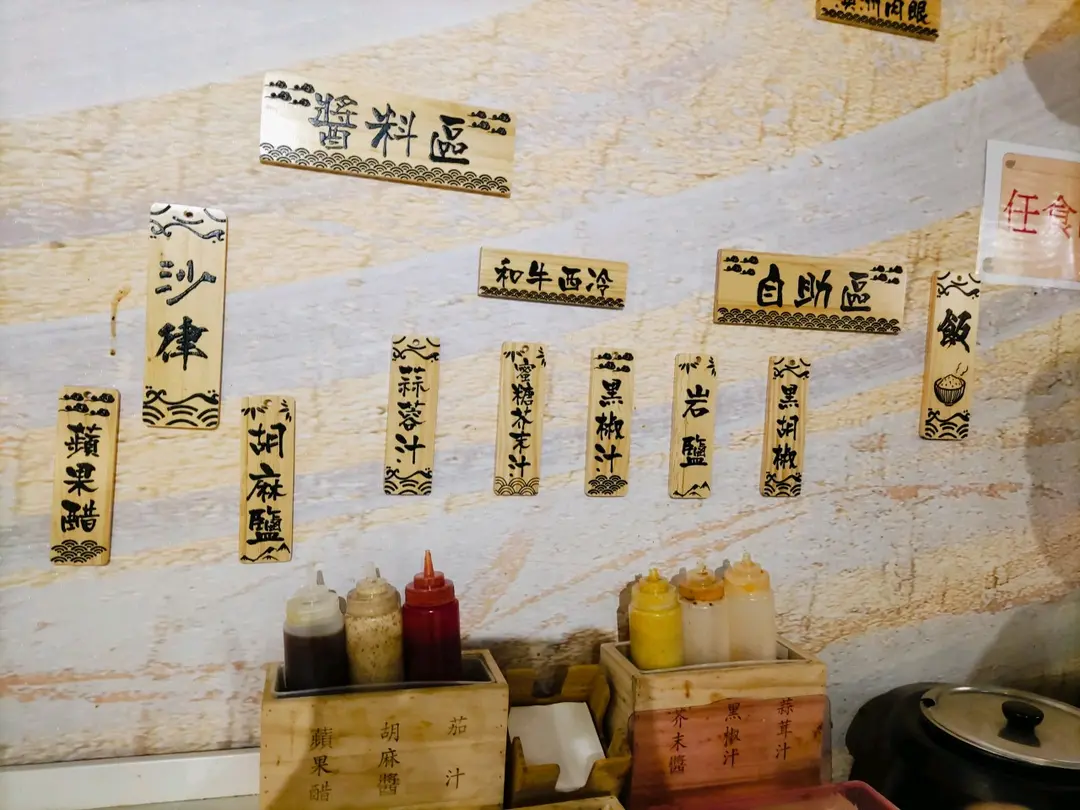 澳洲肉眼
醬料區
任食
沙律
和牛西冷
自助區
飯
蘋果醋
胡麻鹽
蒜蓉汁
蜜糖芥末汁
黑椒汁
岩鹽
黑胡椒
蘋果醋
胡麻醬
茄汁
芥末醬
黑椒汁
蒜茸汁